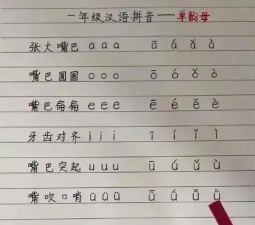 一年级汉语拼音——单韵母
张大嘴巴 ɑ ɑ ɑ ɑ̄ ɑ́ ɑ̌ ɑ̀
嘴巴圆圆 o o o ō ó ǒ ò
嘴巴扁扁 e e e ē é ě è
牙齿对齐 i i i ī í ǐ ì
嘴巴突起 u u u ū ú ǔ ù
嘴吹口哨 ü ü ü ǖ ǘ ǚ ǜ